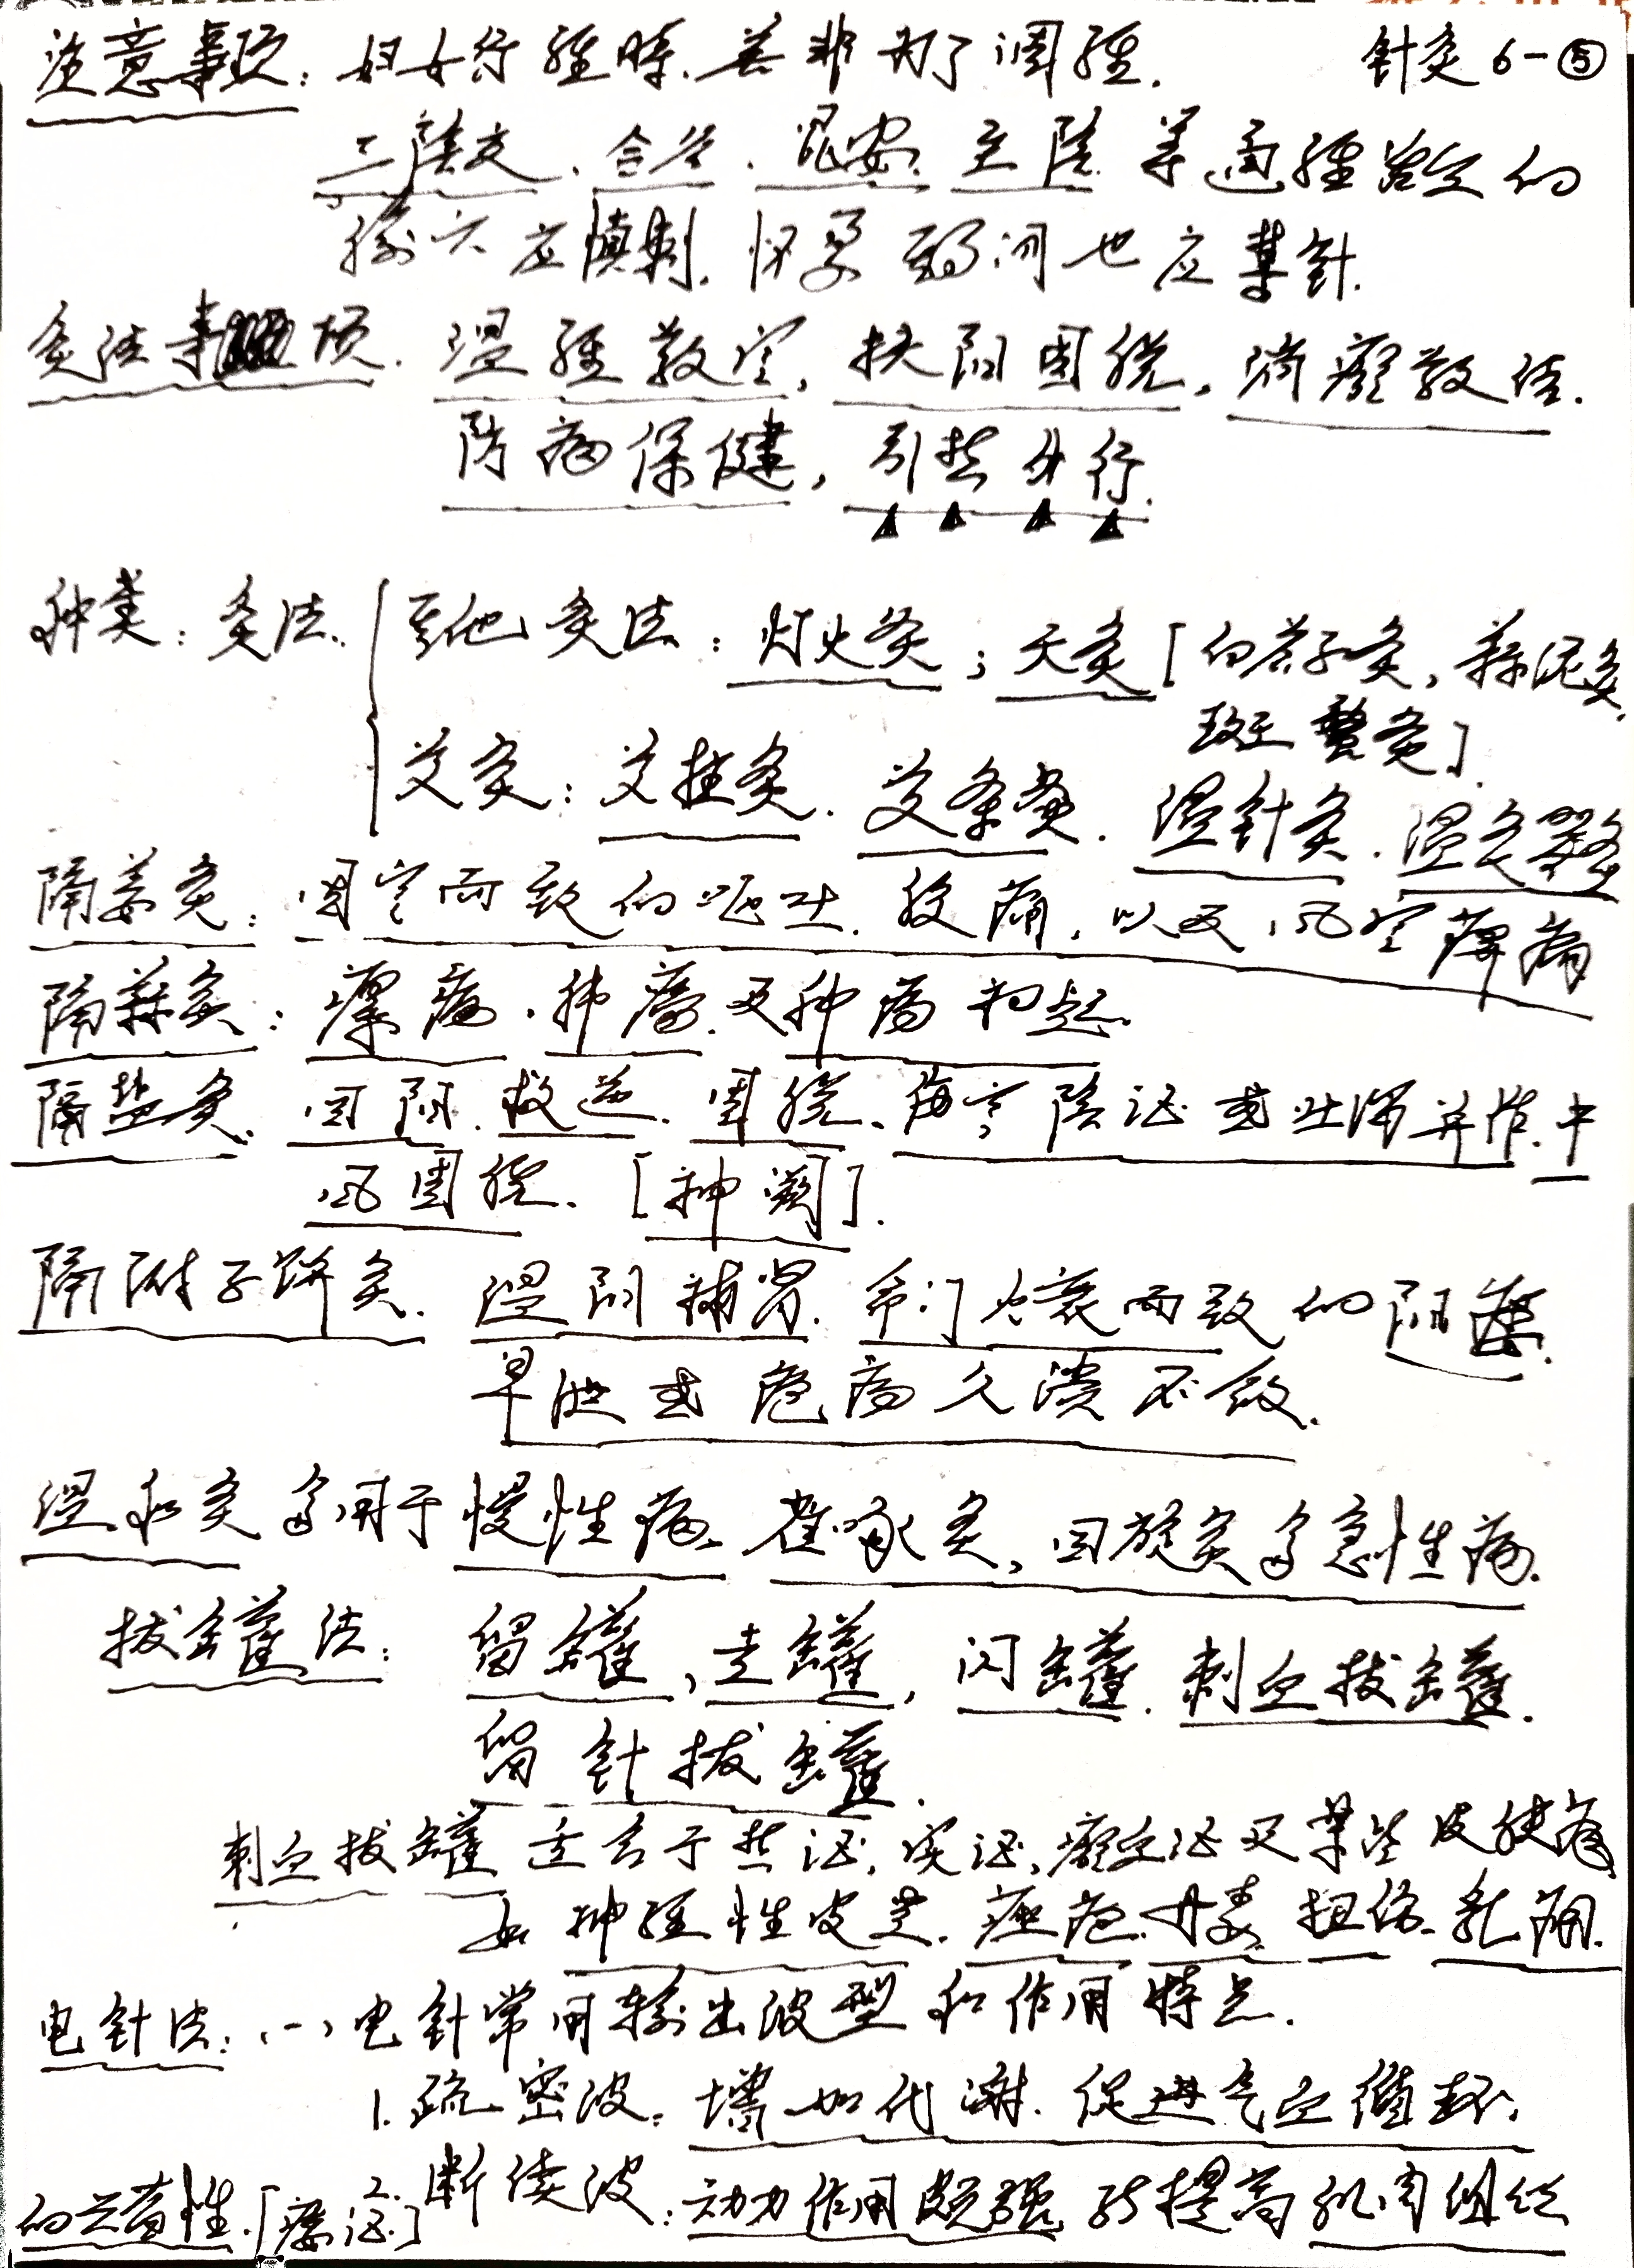 注意事项：妇女行经时、若非为了调经. 针灸6-⑤
三陰交、合谷、昆仑、至陰等通经活血的
腧穴应慎刺. 怀孕期间也应禁针.
灸法事项. 温经散寒, 扶阳固脱, 消瘀散结.
防病保健, 引热外行.
种类：灸法. 其他灸法：灯火灸；天灸[白芥子灸, 蒜泥灸,
斑蝥灸].
艾灸：艾柱灸. 艾条灸. 温针灸. 温灸器灸
隔姜灸：因寒而致的呕吐. 腹痛, 以及风寒痹痛
隔蒜灸：瘰疬. 肺痨. 及肿疡初起.
隔盐灸. 回阳. 救逆. 固脱. 伤寒陰证或吐泻并作. 中
风固脱. [神阙].
隔附子饼灸. 温阳补肾. 命门火衰而致的阳痿.
早泄或疮疡久溃不敛.
温和灸多用于慢性病. 雀啄灸, 回旋灸多急性病.
拔罐法：留罐, 走罐, 闪罐. 刺血拔罐.
留针拔罐.
刺血拔罐适合于热证, 实证, 瘀血证及某些皮肤病
如神经性皮炎. 痤疮. 丹毒. 扭伤. 乳痈.
电针法：(一)电针常用输出波型和作用特点.
1. 疏密波：增加代谢. 促进气血循环.
2. 断续波：动力作用颇强, 能提高肌肉组织
的兴奋性. [痿证]